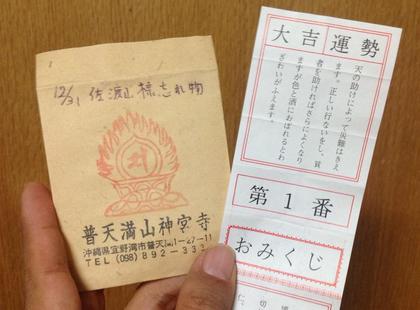 12/31 佐渡山 様 忘れ物
普天満山神宮寺
沖縄県宜野湾市普天間1-27-11
TEL (098) 892-333
大吉運勢
天の助けによって災難はきえ
ます。正しい行ないをし、貧
者を助ければさらによくなり
ますが色と酒におぼれるとわ
ざわいがふえます。
第1番
おみくじ